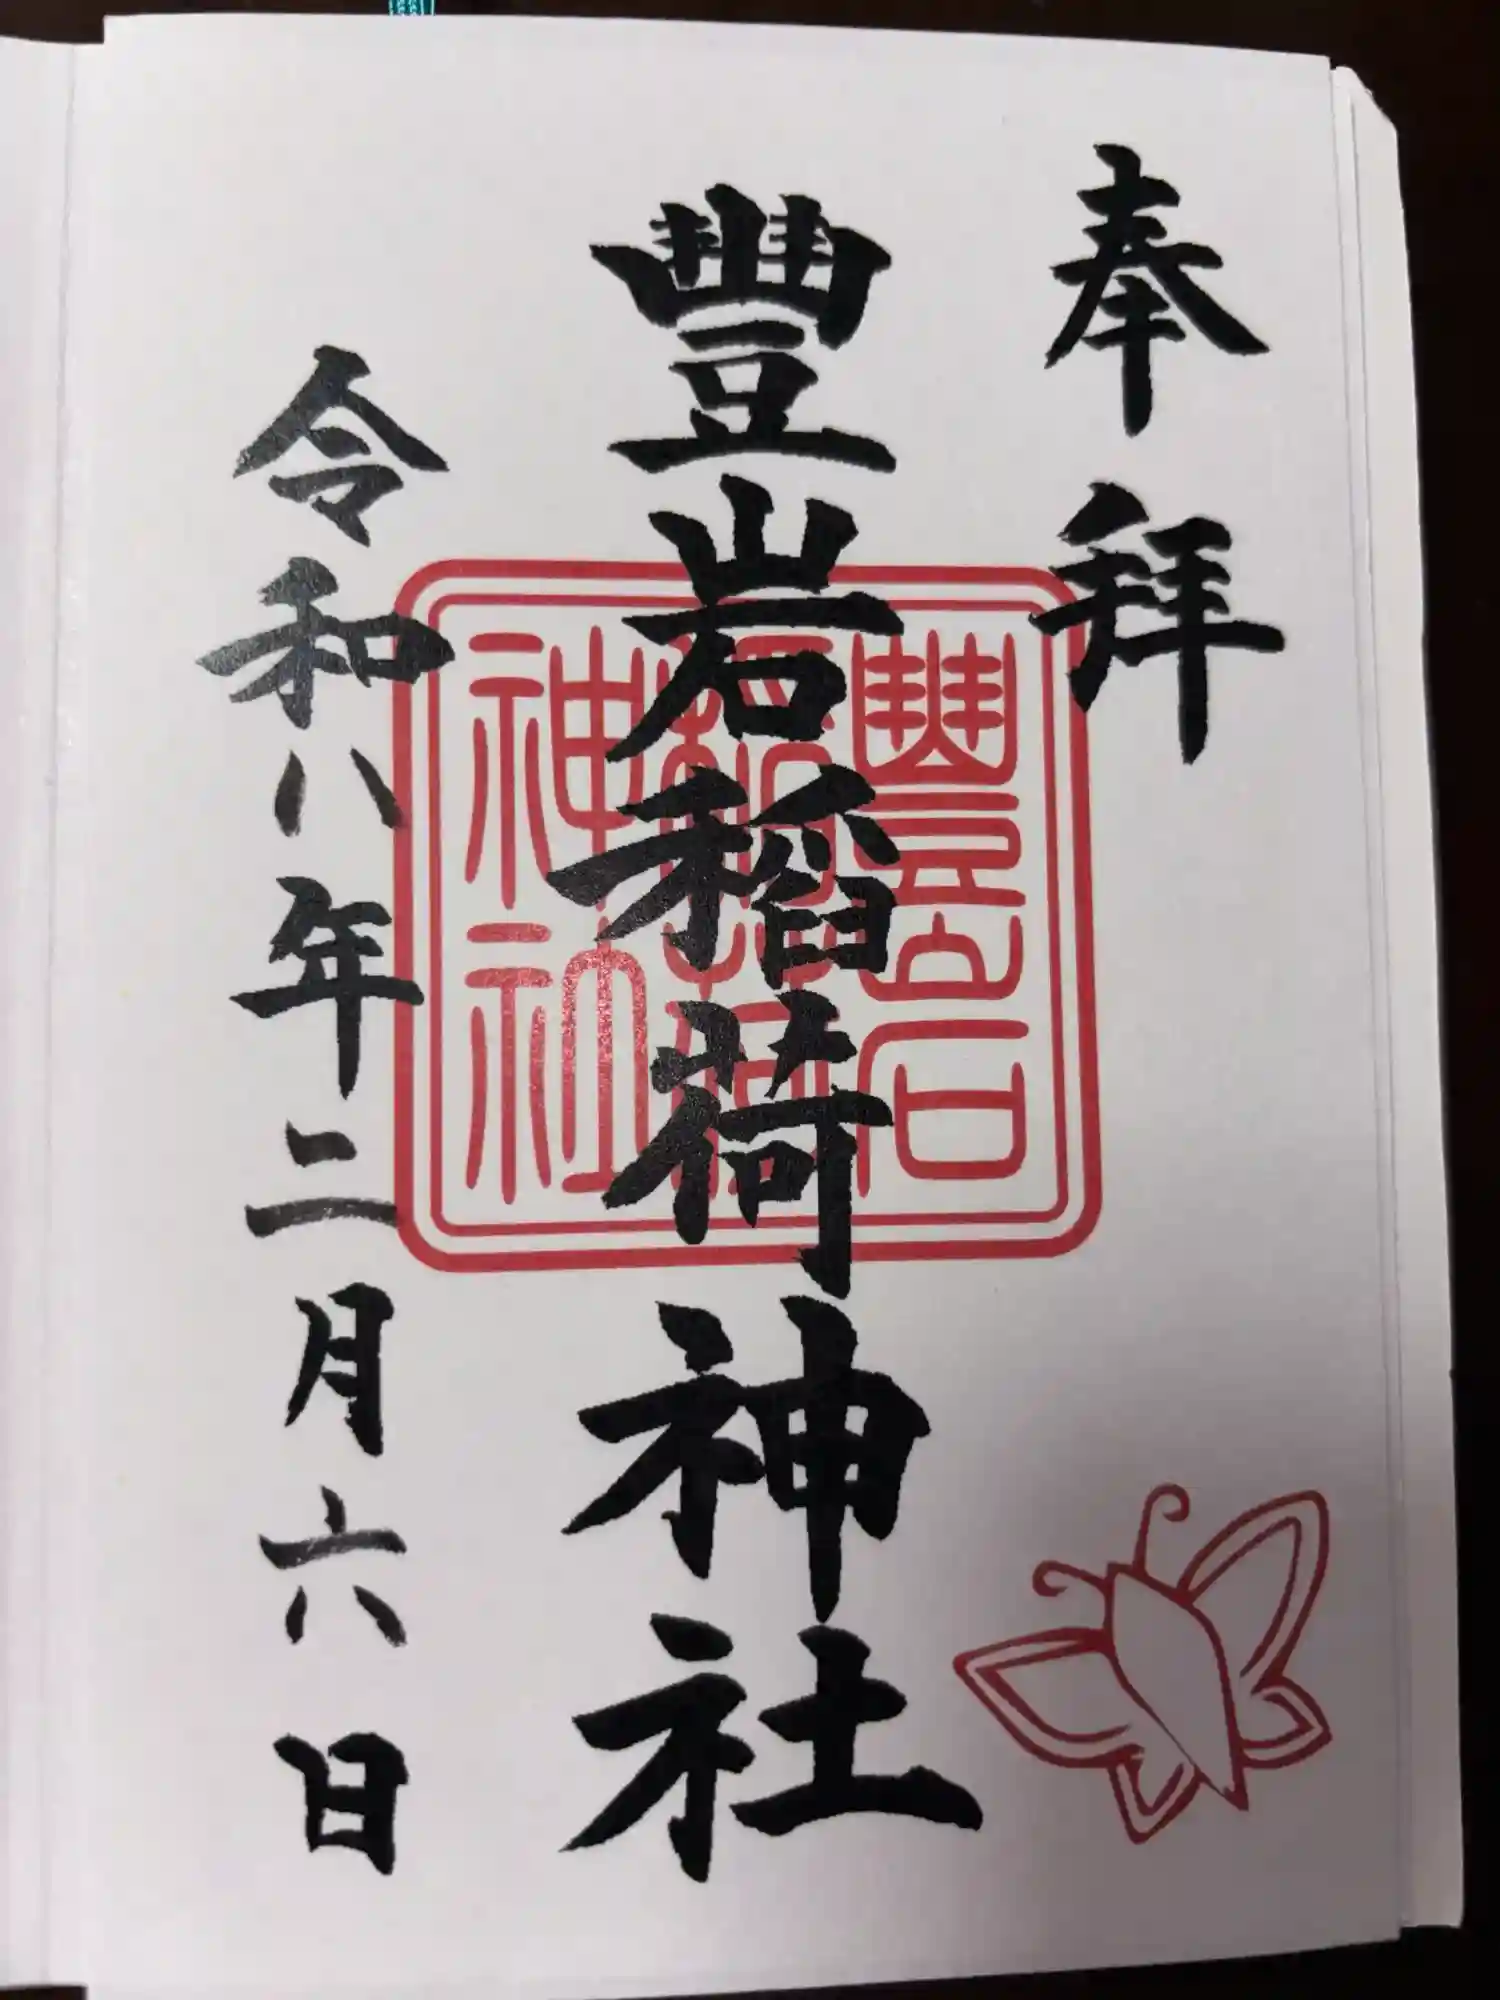 奉拜
豐岩稻荷神社
豐岩
稲荷
神社
令和八年二月六日